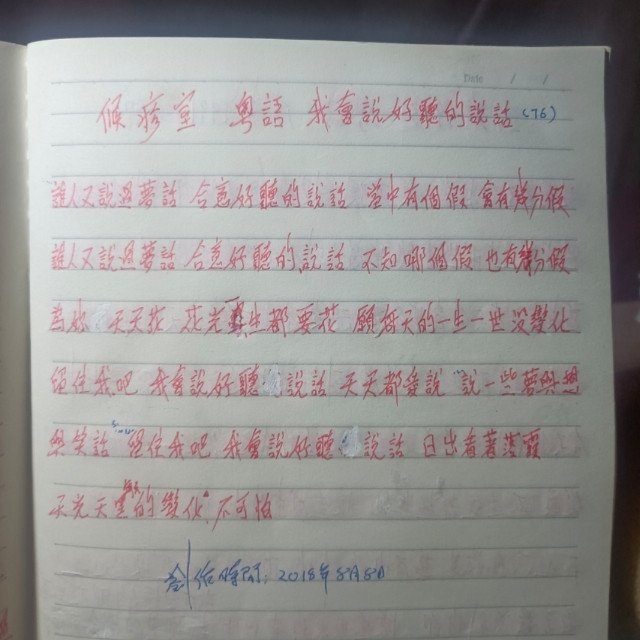 Date / /
候疹室 粤語 我會說好聽的說話 (76)
誰人又說過夢話 合意好聽的說話 當中有個假 會有幾分假
誰人又說過夢話 合意好聽的說話 不知哪個假 也有幾分假
為她 天天花 花光 一生都要花 願每天的一生一世没變化
留住我吧 我會說好聽 說話 天天都愛說 說一些夢與想
與笑話 留住我吧 我會說好聽 說話 日出看著落霞
天光天黑的變化 不可怕
創作時間: 2018年8月8日